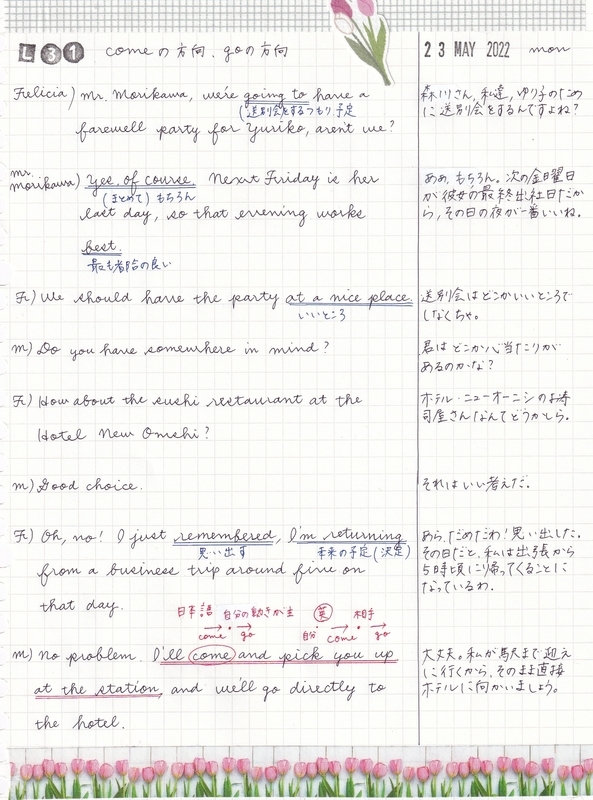 L 31 comeの方向、goの方向
23 MAY 2022 mon
Felicia) Mr. Morikawa, we're going to have a
(送別会をするつもり、予定
farewell party for Yuriko, aren't we?
森川さん、私達、ゆり子のため
に送別会をするんですよね?
Mr.
Morikawa) Yes, of course. Next Friday is her
(まとめて) もちろん
last day, so that evening works
best.
最も都合の良い
ああ、もちろん。次の金曜日
が彼女の最終出社日だか
ら、その日の夜が一番いいね。
F) We should have the party at a nice place.
いいところ
送別会はどこかいいところで
しなくちゃ。
M) Do you have somewhere in mind?
君はどこか心当たりが
あるのかな?
F) How about the sushi restaurant at the
Hotel New Omshi?
ホテル・ニューオーニシのお寿
司屋さんなんてどうかしら。
M) Good choice.
それはいい考えだ。
F) Oh, no! I just remembered, I'm returning
思い出す 未来の予定(決定)
from a business trip around five on
that day.
あら、だめだわ!思い出した。
その日だと、私は出張から
5時頃に帰ってくることに
なっているわ。
日本語 自分の動きが主 英 相手
→ → 自分 → →
come go come go
M) No problem. I'll come and pick you up
at the station, and we'll go directly to
the hotel.
大丈夫。私が駅まで迎え
に行くから、そのまま直接
ホテルに向かいましょう。